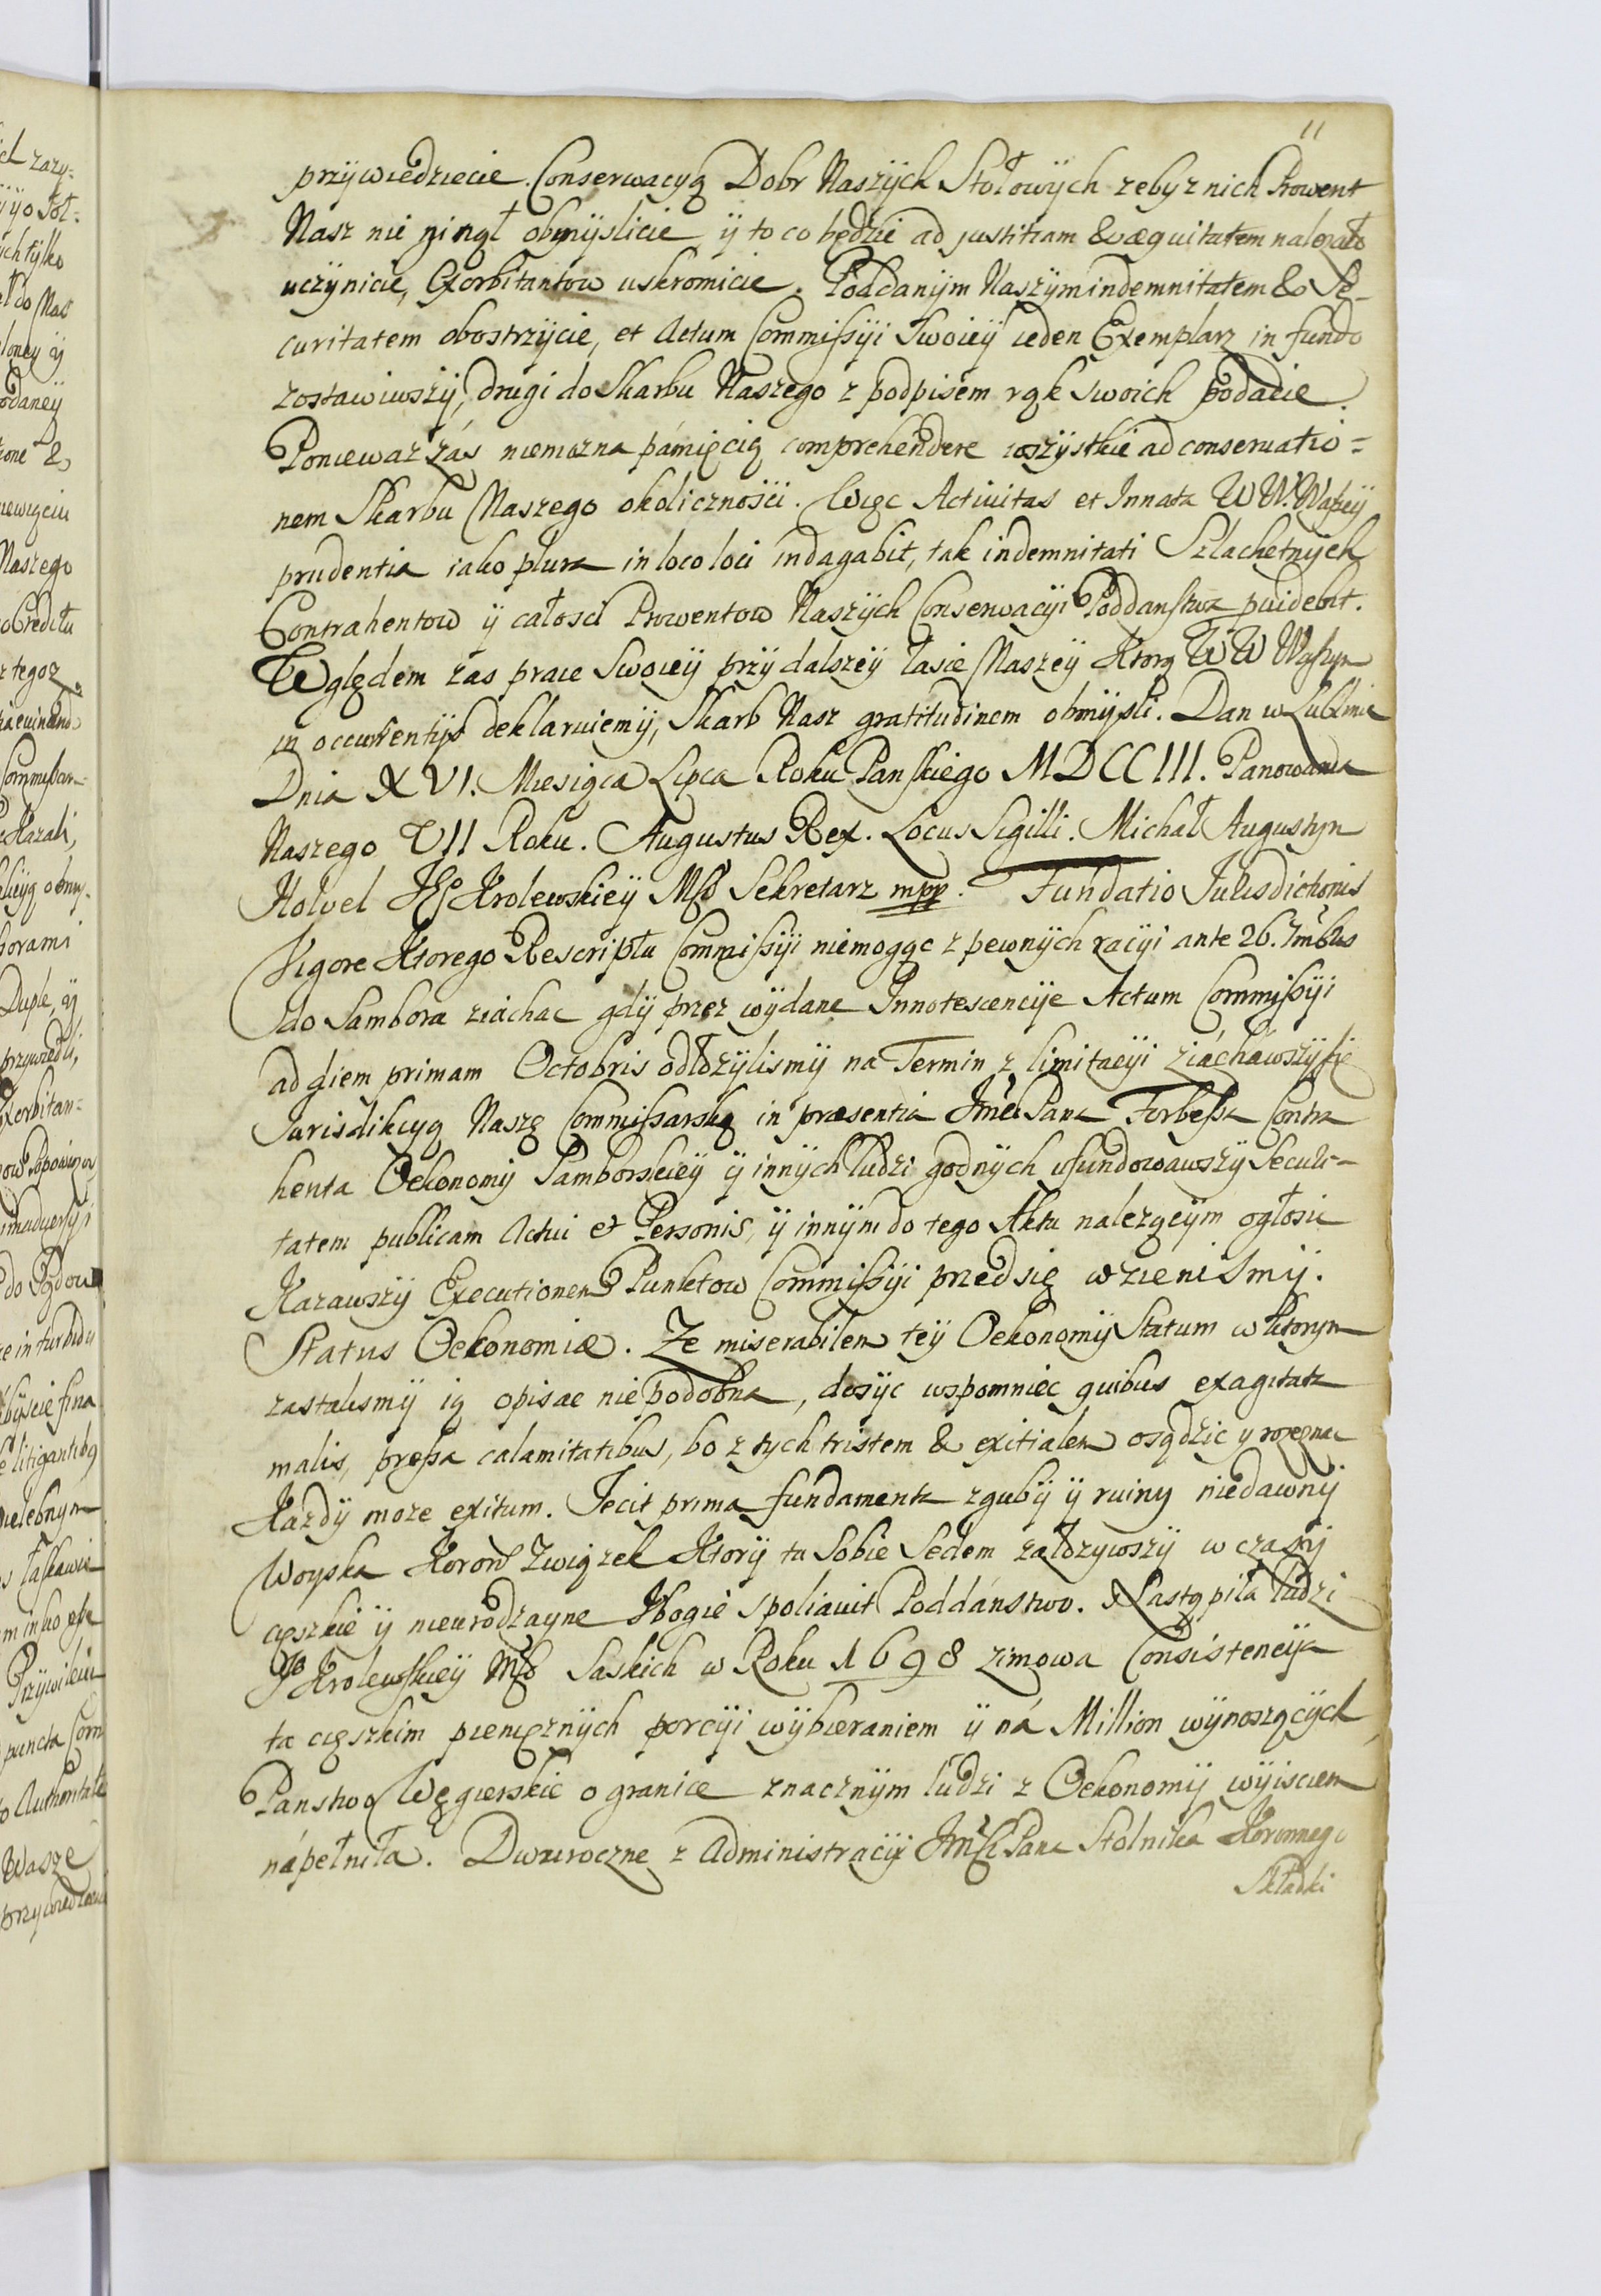 11
przÿwiedziecie. Conserwacyą Dobr Naszÿch Stołowÿch zeby z nich Prowent
Nasz nie ginął obmÿslicie ÿ to co będzie ad justitiam & æquitatem nalezało
uczÿnicie, Exorbitantow uskromicie. Poddanÿm Naszÿm indemnitatem & Se-
curitatem obostrzÿcie, et Actum Commissÿi Swoieÿ ieden Exemplarz in fundo
zostawiwszÿ, drugi do Skarbu Naszego z podpisem rąk swoich podacie.
Poniewaz zás niemozna pámięcią comprehendere wszÿstkie ad conservatio=
nem Skarbu Naszego okolicznosci. Więc Activitas et Innata W W. Waszeÿ
prudentia iako plura in loco loci indagabit, tak indemnitati Szlachetnÿch
Contrahentow ÿ całosci Prowentow Naszÿch Conserwacÿi Poddanstwa pvidebit.
Względem zas prace Swoieÿ przÿ dalszeÿ łasce Naszeÿ Ktorą W W Waszÿm
in occurrentÿs deklaruiemÿ, Skarb Nasz gratitudinem obmÿsli. Dan w Lublinie
Dnia XVI. Miesiąca Lipca Roku Panskiego MDCCIII. Panowania
Naszego VII Roku. Augustus Rex. Locus Sigilli. Michał Augustyn
Holvel JKrolewskieÿ Msci Sekretarz mpp. Fundatio Jurisdictionis
Vigore Ktorego Rescriptu Commissÿi niemogąc z pewnÿch racÿi ante 26. 7mbris
do Sambora ziachac gdÿ przez wÿdane Innotescencÿe Actum Commissÿi
ad diem primam Octobris odłozÿlismÿ na Termin z limitacÿi ziáchawszÿ się
Jurisdikcyą Naszą Commissarską in præsentia Jmci Pana Forbessa Contra
henta Oekonomÿ Samborskieÿ ÿ innÿch ludzi godnÿch ufundowawszÿ Securi-
tatem publicam Actui et Personis, ÿ innÿm do tego Aktu nalezącÿm ogłosic
Kazawszÿ Executionem Punktow Commissÿi przedsię wzielismÿ.
Status Oekonomiæ. Ze miserabilem teÿ Oekonomÿ Statum w Ktorym
zastalismÿ ią opisac niepodobna, dosÿc wspomniec quibus exagitata
malis, pressa calamitatibus, bo z tych tristem & exitialem osądzic y rozeznac
Kazdÿ moze exitum. Jecit prima fundamenta zgubÿ ÿ ruiny niedawnÿ
Woyska Koron Związek Ktorÿ tu Sobie Sedem załozywszÿ w czasÿ
cięszkie ÿ nieurodzayne Ubogie spoliavit Poddánstwo. Nastąpiła ludzi
JKrolewskieÿ Msci Saskich w Roku 1698 zimowa Consistencÿa
ta cięszkim pieniężnÿch porcÿi wÿbieraniem ÿ ná Million wÿnoszącÿch
Panstwo Węgierskie o granice znacznÿm ludzi z Oekonomÿ wÿisciem
nápełniła. Dwuroczne z Administracÿi Jmsci Pana Stolnika Koronnego
Składki